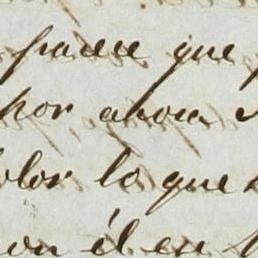 parece que
por ahora
olor lo que
él en